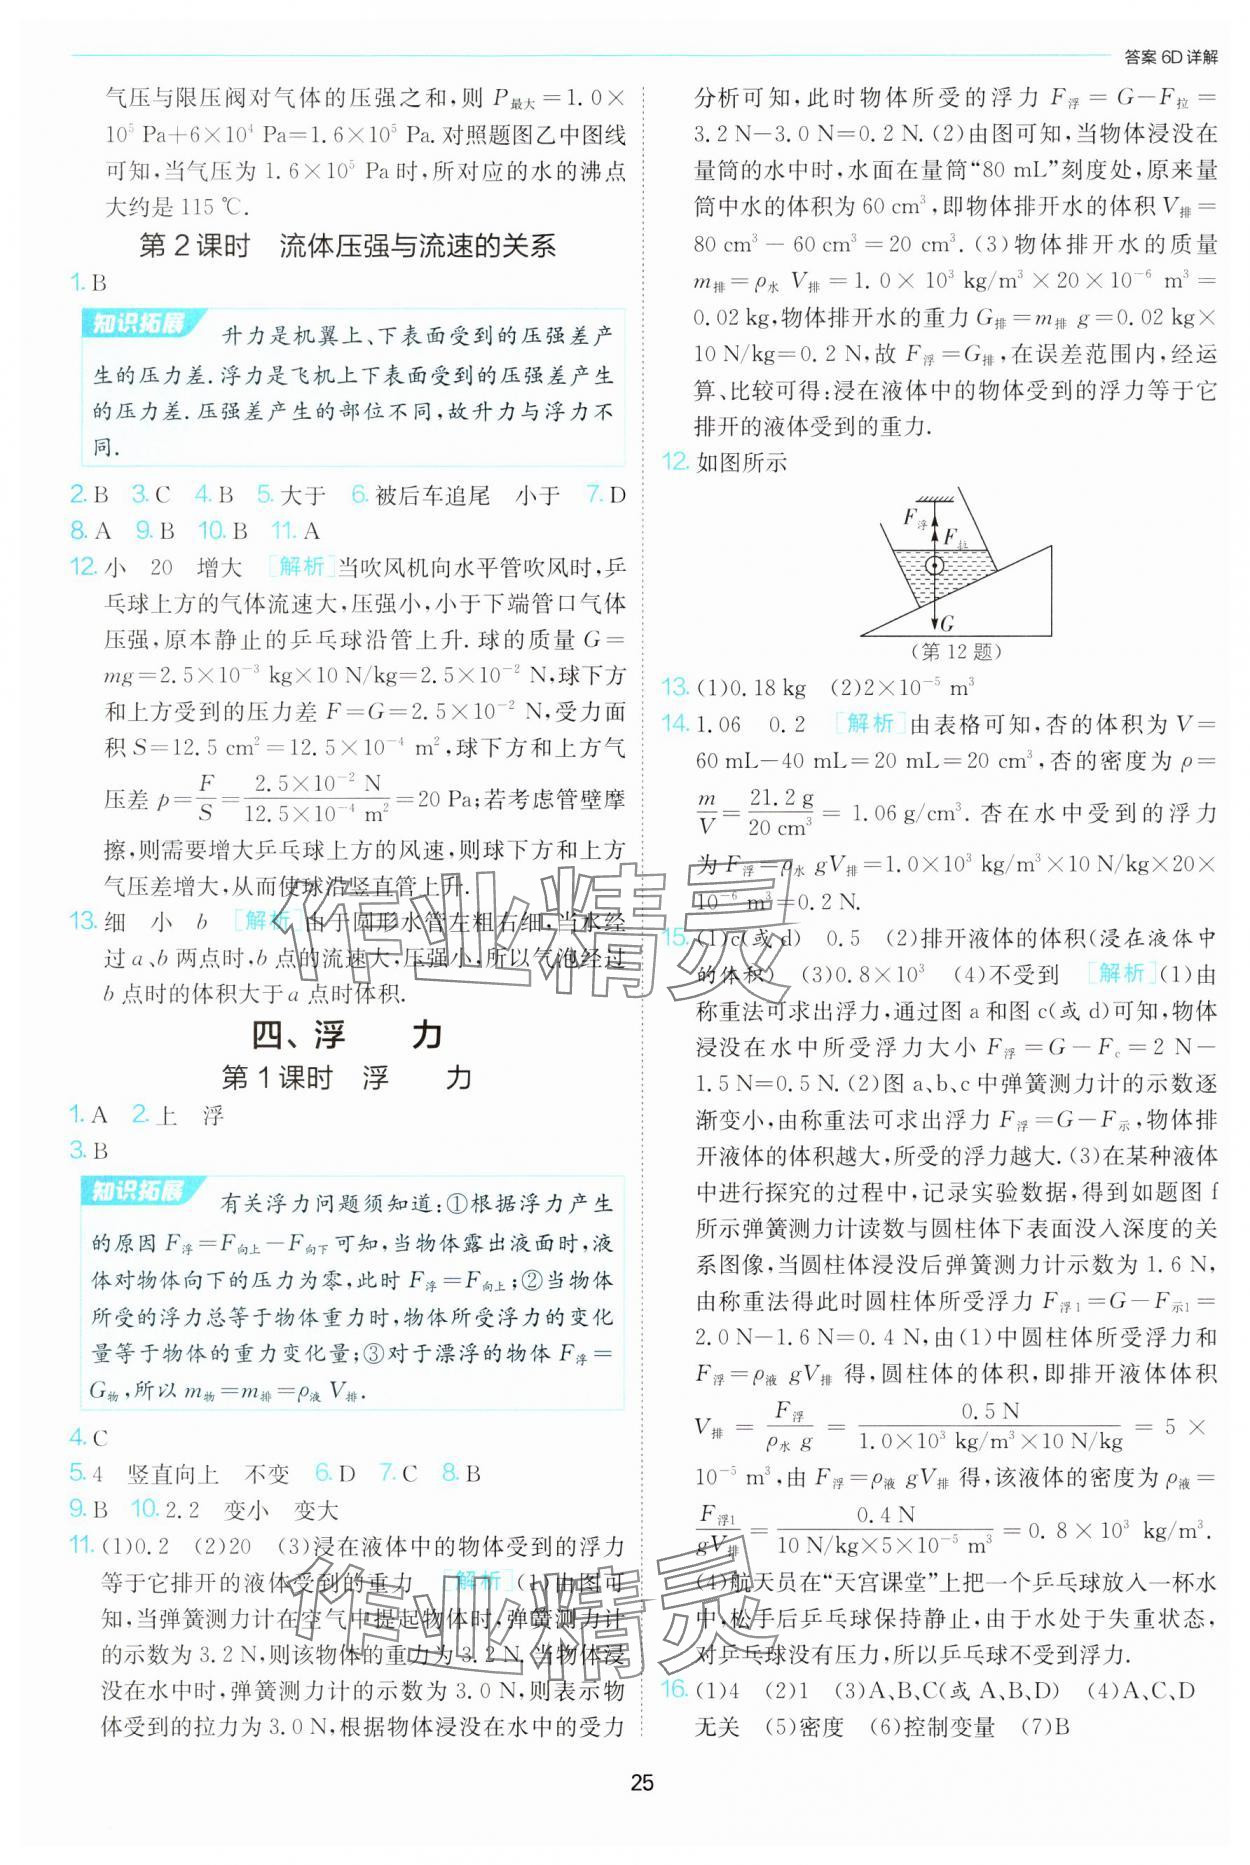 答案 6D 详解
气压与限压阀对气体的压强之和,则 P最大=1.0×
10⁵ Pa+6×10⁴ Pa=1.6×10⁵ Pa.对照题图乙中图线
可知,当气压为 1.6×10⁵ Pa 时,所对应的水的沸点
大约是 115 ℃.
第 2 课时　流体压强与流速的关系
1. B
知识拓展
升力是机翼上、下表面受到的压强差产
生的压力差.浮力是飞机上下表面受到的压强差产生
的压力差.压强差产生的部位不同,故升力与浮力不
同.
2. B　3. C　4. B　5. 大于　6. 被后车追尾　小于　7. D
8. A　9. B　10. B　11. A
12. 小　20　增大　[解析]当吹风机向水平管吹风时,乒
乓球上方的气体流速大,压强小,小于下端管口气体
压强,原本静止的乒乓球沿管上升.球的质量 G=
mg=2.5×10⁻³ kg×10 N/kg=2.5×10⁻² N,球下方
和上方受到的压力差 F=G=2.5×10⁻² N,受力面
积 S=12.5 cm²=12.5×10⁻⁴ m²,球下方和上方气
压差 p=F/S=2.5×10⁻² N/12.5×10⁻⁴ m²=20 Pa;若考虑管壁摩
擦,则需要增大乒乓球上方的风速,则球下方和上方
气压差增大,从而使球沿竖直管上升.
13. 细　小　b　[解析]由于圆形水管左粗右细,当水经
过 a、b 两点时,b 点的流速大,压强小,所以气泡经过
b 点时的体积大于 a 点时体积.
四、浮　力
第 1 课时　浮　力
1. A　2. 上　浮
3. B
知识拓展
有关浮力问题须知道:①根据浮力产生
的原因 F浮=F向上-F向下可知,当物体露出液面时,液
体对物体向下的压力为零,此时 F浮=F向上;②当物体
所受的浮力总等于物体重力时,物体所受浮力的变化
量等于物体的重力变化量;③对于漂浮的物体 F浮=
G物,所以 m物=m排=ρ液 V排.
4. C
5. 4　竖直向上　不变　6. D　7. C　8. B
9. B　10. 2.2　变小　变大
11. (1)0.2　(2)20　(3)浸在液体中的物体受到的浮力
等于它排开的液体受到的重力　[解析](1)由图可
知,当弹簧测力计在空气中提起物体时,弹簧测力计
的示数为 3.2 N,则该物体的重力为 3.2 N.当物体浸
没在水中时,弹簧测力计的示数为 3.0 N,则表示物
体受到的拉力为 3.0 N,根据物体浸没在水中的受力
分析可知,此时物体所受的浮力 F浮=G-F拉=
3.2 N-3.0 N=0.2 N.(2)由图可知,当物体浸没在
量筒的水中时,水面在量筒“80 mL”刻度处,原来量
筒中水的体积为 60 cm³,即物体排开水的体积 V排=
80 cm³-60 cm³=20 cm³.(3)物体排开水的质量
m排=ρ水 V排=1.0×10³ kg/m³×20×10⁻⁶ m³=
0.02 kg,物体排开水的重力 G排=m排 g=0.02 kg×
10 N/kg=0.2 N,故 F浮=G排,在误差范围内,经运
算、比较可得:浸在液体中的物体受到的浮力等于它
排开的液体受到的重力.
12. 如图所示
F浮
F拉
G
(第 12 题)
13. (1)0.18 kg　(2)2×10⁻⁵ m³
14. 1.06　0.2　[解析]由表格可知,杏的体积为 V=
60 mL-40 mL=20 mL=20 cm³,杏的密度为 ρ=
m/V=21.2 g/20 cm³=1.06 g/cm³.杏在水中受到的浮力
为 F浮=ρ水 gV排=1.0×10³ kg/m³×10 N/kg×20×
10⁻⁶ m³=0.2 N.
15. (1)c(或 d)　0.5　(2)排开液体的体积(浸在液体中
的体积)　(3)0.8×10³　(4)不受到　[解析](1)由
称重法可求出浮力,通过图 a 和图 c(或 d)可知,物体
浸没在水中所受浮力大小 F浮=G-Fc=2 N-
1.5 N=0.5 N.(2)图 a、b、c 中弹簧测力计的示数逐
渐变小,由称重法可求出浮力 F浮=G-F示,物体排
开液体的体积越大,所受的浮力越大.(3)在某种液体
中进行探究的过程中,记录实验数据,得到如题图 f
所示弹簧测力计读数与圆柱体下表面没入深度的关
系图像,当圆柱体浸没后弹簧测力计示数为 1.6 N,
由称重法得此时圆柱体所受浮力 F浮1=G-F示1=
2.0 N-1.6 N=0.4 N,由(1)中圆柱体所受浮力和
F浮=ρ液 gV排 得,圆柱体的体积,即排开液体体积
V排=F浮/ρ水 g=0.5 N/1.0×10³ kg/m³×10 N/kg=5×
10⁻⁵ m³,由 F浮=ρ液 gV排 得,该液体的密度为 ρ液=
F浮1/gV排=0.4 N/10 N/kg×5×10⁻⁵ m³=0.8×10³ kg/m³.
(4)航天员在“天宫课堂”上把一个乒乓球放入一杯水
中,松手后乒乓球保持静止,由于水处于失重状态,
对乒乓球没有压力,所以乒乓球不受到浮力.
16. (1)4　(2)1　(3)A、B、C(或 A、B、D)　(4)A、C、D
无关　(5)密度　(6)控制变量　(7)B
作业精灵
作业精灵
25